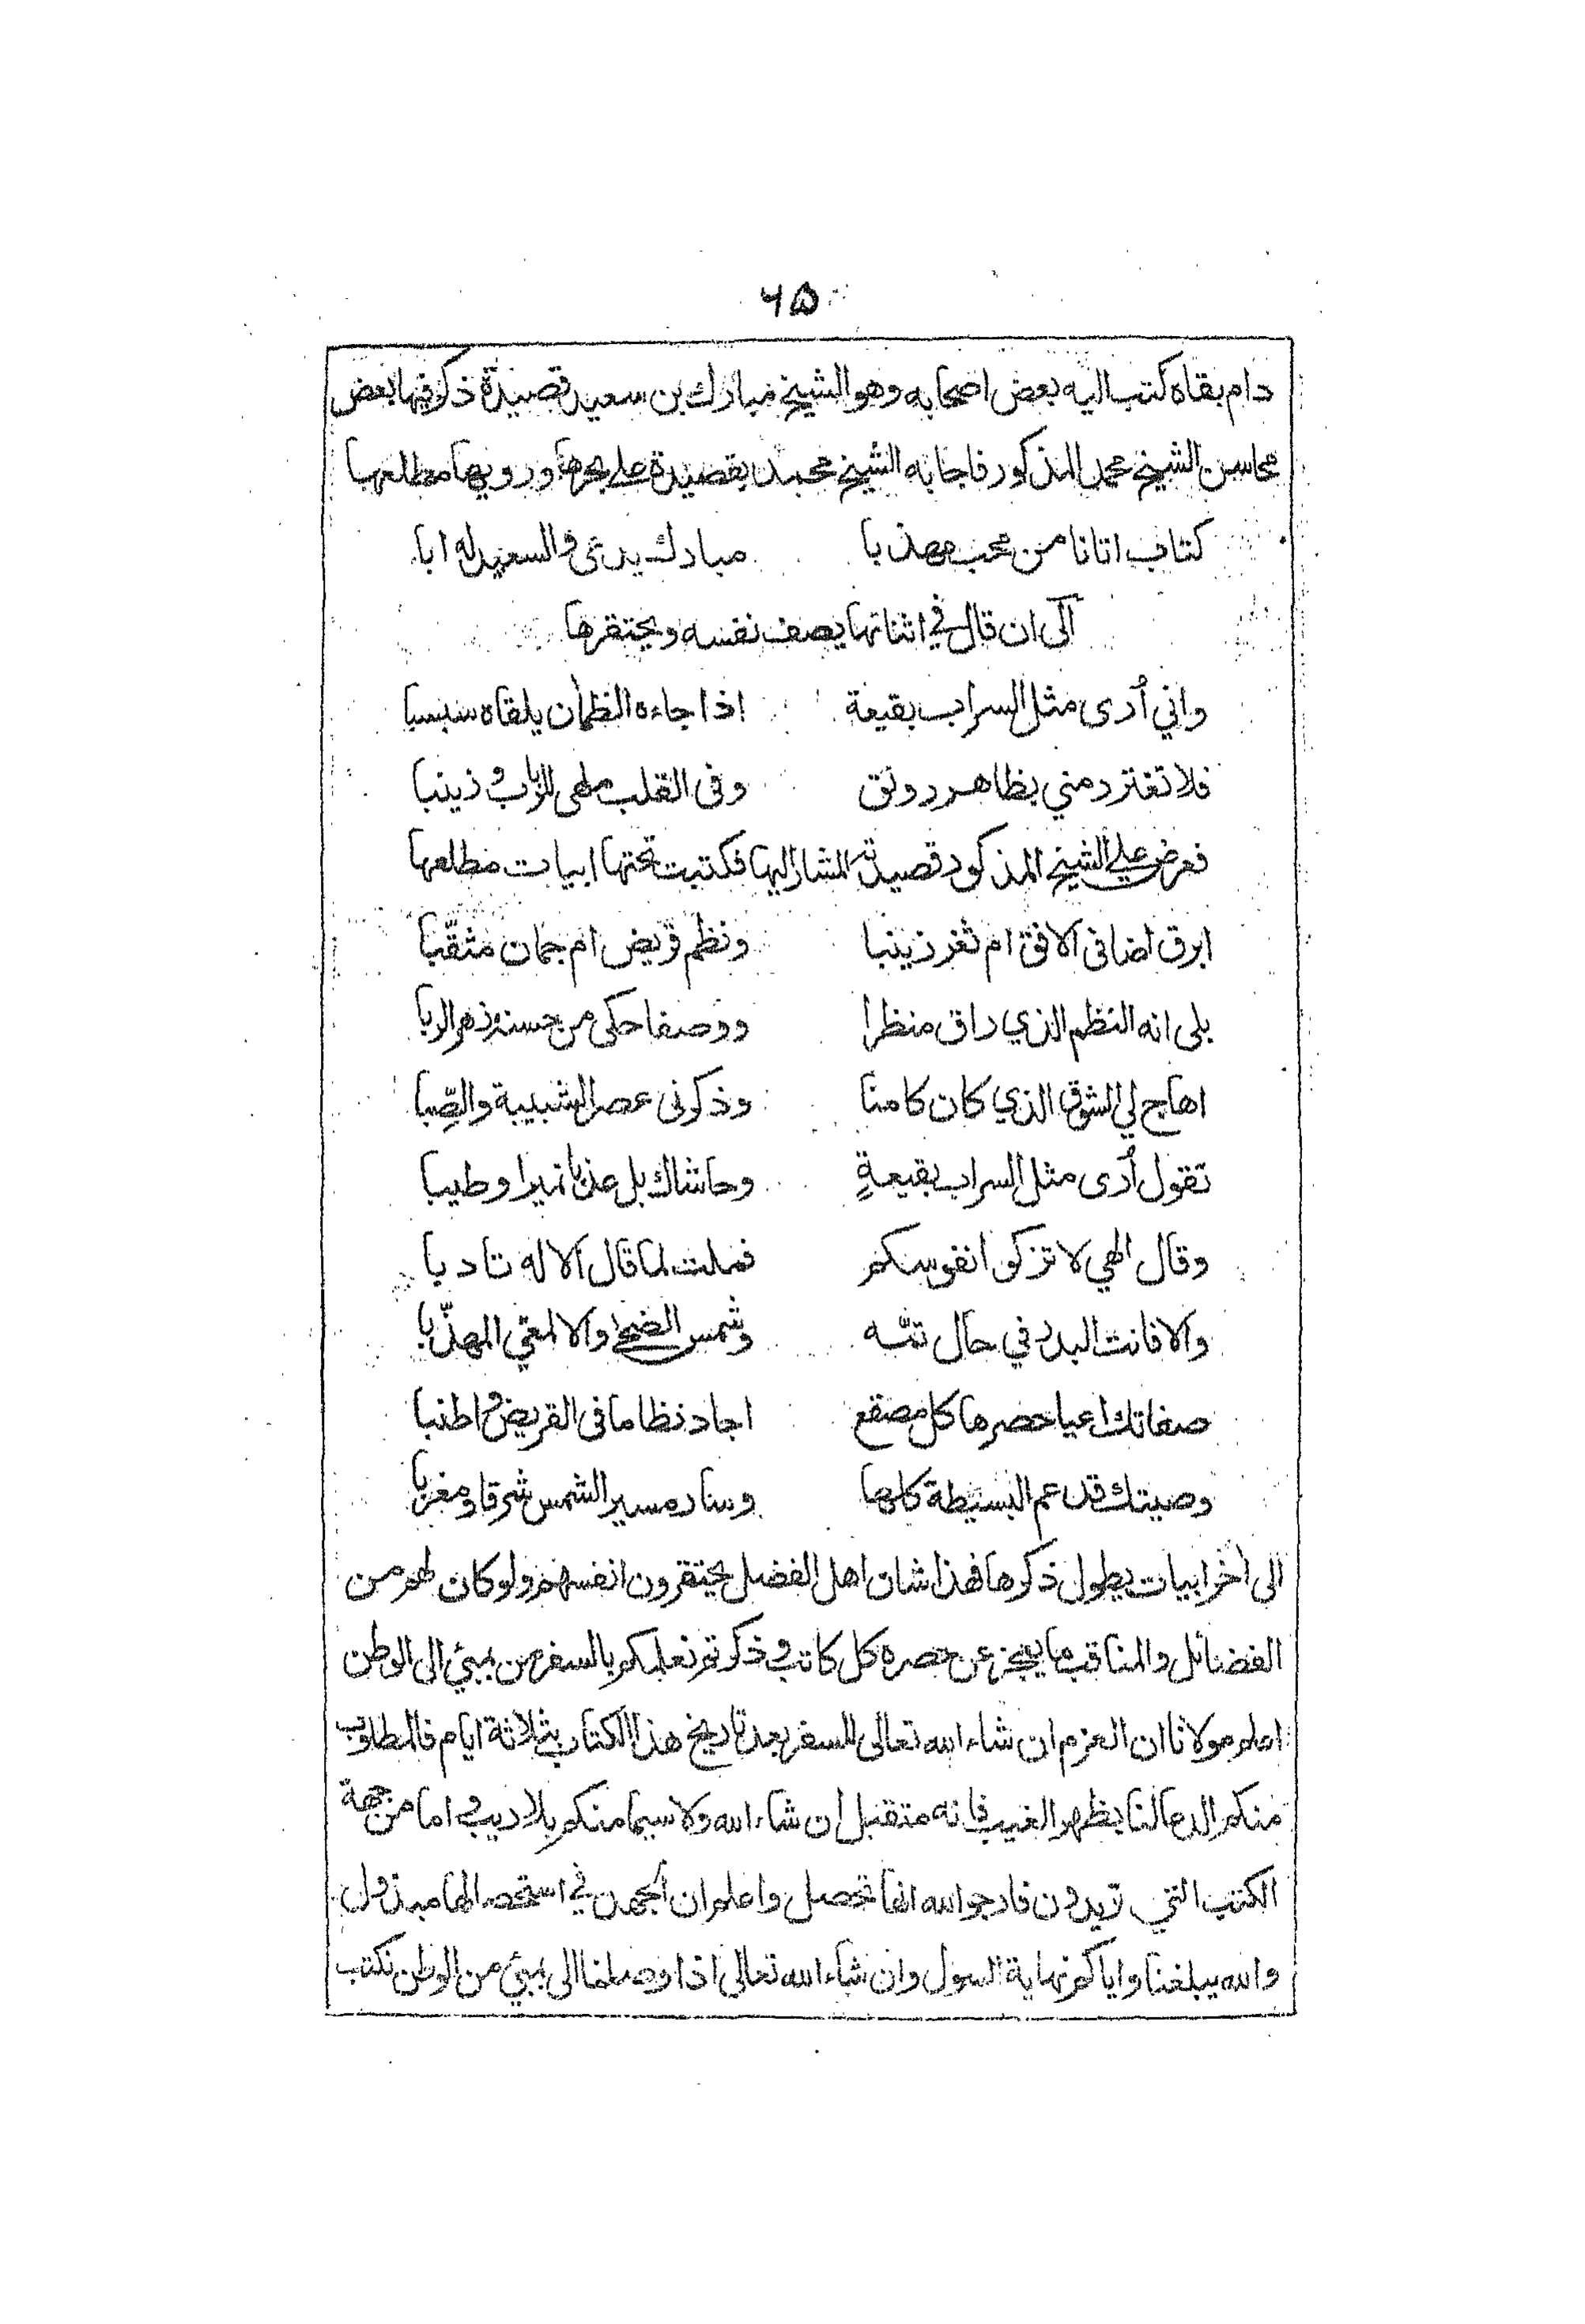 ٦٥
دام بقاه كتب اليه بعض اصحابه وهو الشيخ مبارك بن سعيد قصيدة ذكر فيها بعض
محاسن الشيخ محمد المذكور فاجابه الشيخ محمد بقصيدة على بحرها ورويها مطلعها
كتاب اتانا من محب مهذبا مبارك يدعى والسعيد له ابا
الى ان قال في اثنائها يصف نفسه ويحتقرها
واني أرى مثل السراب بقيعة اذا جاءه الظمأن يلقاه سبسبا
فلا تغترر مني بظاهر رونق وفى القلب ملهى للرباب وزينبا
فعرض علي الشيخ المذكور قصيدته المشار اليها فكتبت تحتها ابيات مطلعها
ابرق اضا فى الافق ام ثغر زينبا ونظم قريض ام جمان مثقّبا
بلى انه النظم الذي راق منظرا ووصفا حكى من حسنه زهر الربا
اهاج لي الشوق الذي كان كامنا وذكرنى عصر الشبيبة والصِّبا
تقول أرى مثل السراب بقيعةٍ وحاشاك بل عذبا نميرا وطيبا
وقال الهي لا تزكوا انفوسكم فملت لما قال الاله تادبا
والا فانت البدر في حال تمّه وشمس الضحى والالمعي المهذّبا
صفاتك اعيا حصرها كل مصقع اجاد نظاما فى القريض واطنبا
وصيتك قد عم البسيطة كلها وسار مسير الشمس شرقا ومغربا
الى أخر ابيات يطول ذكرها فهذا شان اهل الفضل يحتقرون انفسهم ولو كان لهم من
الفضائل والمناقب ما يعجز عن حصره كل كاتب وذكرتم نعلمكم بالسفر من بمبئي الى الوطن
اعلم مولانا ان العزم ان شاء الله تعالى للسفر بعد تاريخ هذا الكتاب بثلاثة ايام فالمطلوب
منكم الدعا لنا بظهر الغيب فانه متقبل ان شاء الله ولا سيما منكم بلا ريب واما من جهة
الكتب التي تريدون فارجو الله انها تحصل واعلم ان الجهد في استحصالها مبذول
والله يبلغنا واياكم نهاية السول وان شاء الله تعالى اذا وصلنا الى بمبئي من الوطن نكتب